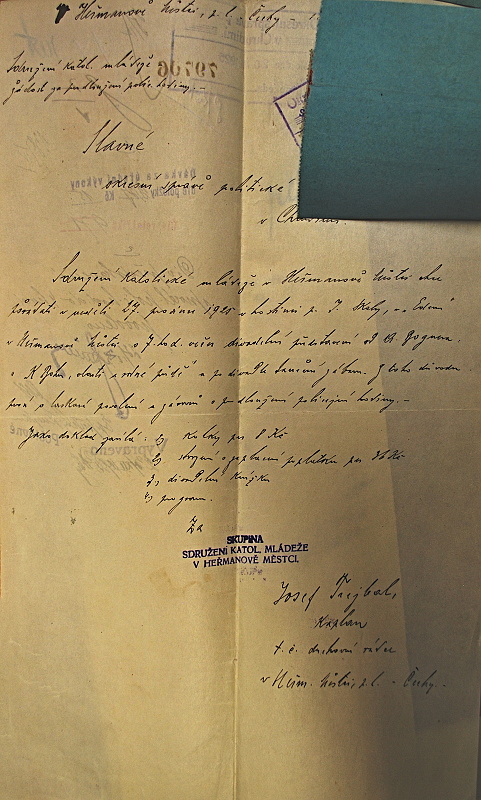 V Heřmanově Městci, z. l. - Čechy -
Sdružení katol. mládeže
žádost za prodloužení polic. hodiny. -
79706
Slavné
okresní správě politické
v Chrudimi.
Sdružení katolické mládeže v Heřmanově Městci chce
pořádati v neděli 27. prosince 1925 v hostinci p. J.
v Heřmanově Městci o 7. hod. večer divadelní představení od B.
a po divadle taneční zábavu. Z toho důvodu
prosí o laskavé povolení a zároveň o prodloužení policejní hodiny. -
Jako doklad zasílá: 1) kolky per 8 Kč
2) o zaplacení poplatku per 36 Kč
3) divadelní knížku
4) program.
Za
SKUPINA
SDRUŽENÍ KATOL. MLÁDEŽE
V HEŘMANOVĚ MĚSTCI.
Josef
Kaplan
t. č. duchovní rádce
v Heřm. Městci, z. l. - Čechy. -